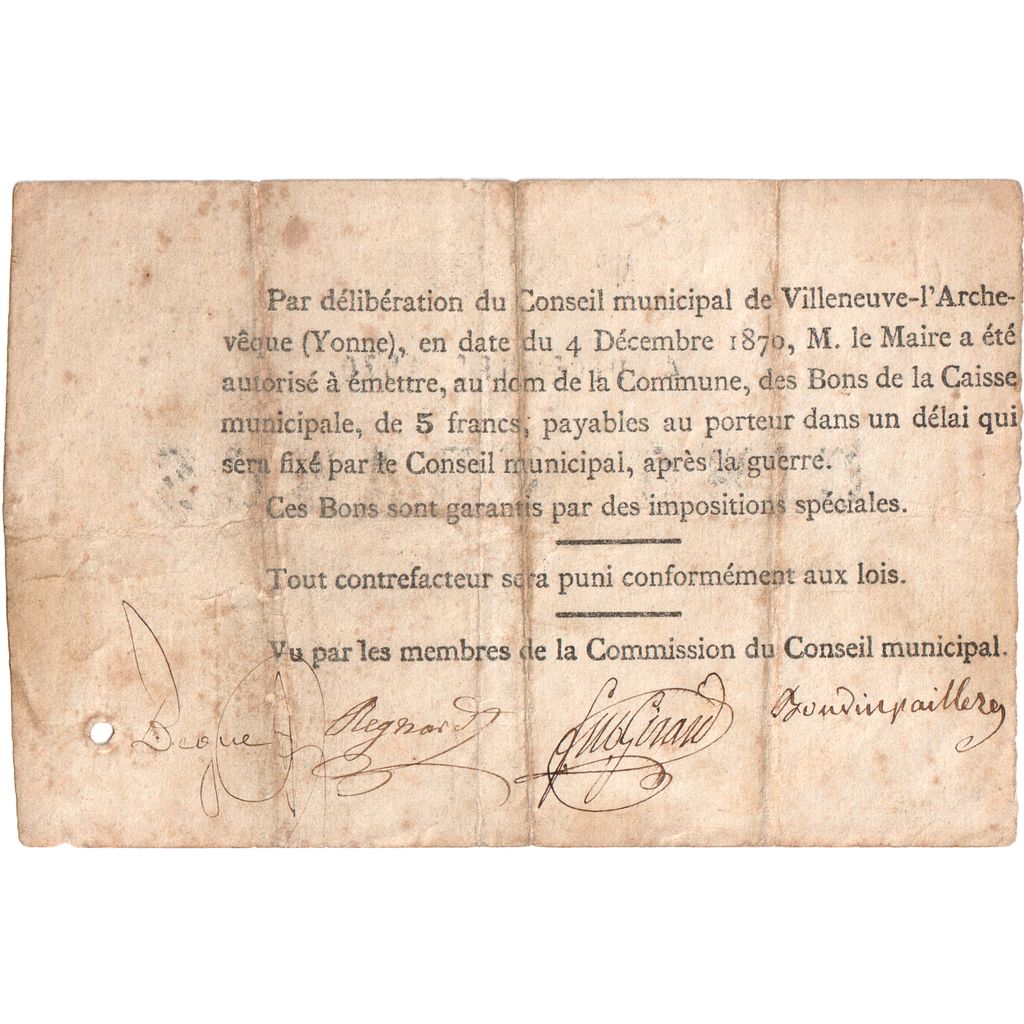 Par délibération du Conseil municipal de Villeneuve-l'Arche-
vêque (Yonne), en date du 4 Décembre 1870, M. le Maire a été
autorisé à émettre, au nom de la Commune, des Bons de la Caisse
municipale, de 5 francs, payables au porteur dans un délai qui
séra fixé par le Conseil municipal, après la guerre.
Ces Bons sont garantis par des impositions spéciales.
Tout contrefacteur sera puni conformément aux lois.
Vu par les membres de la Commission du Conseil municipal.
Regnard Girard